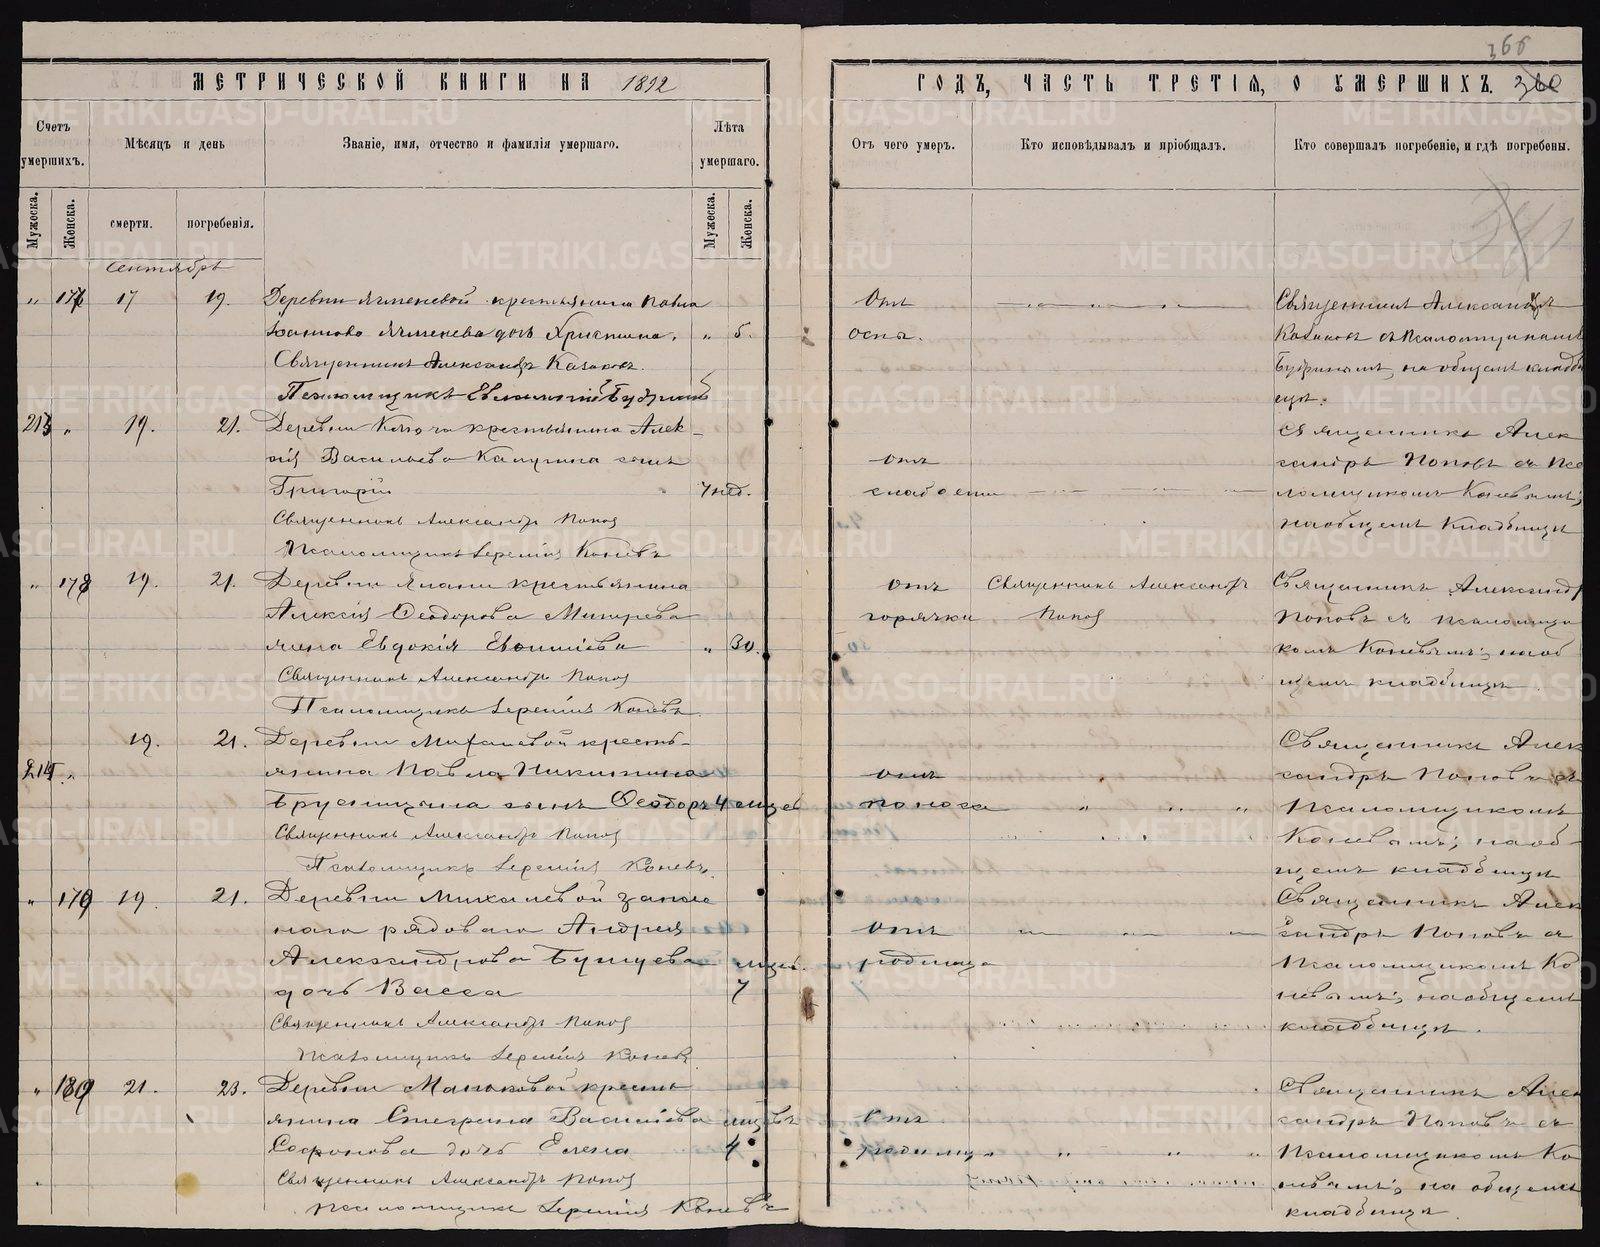 366
МЕТРИЧЕСКОЙ КНИГИ НА 1892
ГОДЪ, ЧАСТЬ ТРЕТІЯ, О УМЕРШИХЪ. 360
Счетъ умершихъ.
Мѣсяцъ и день
Званіе, имя, отчество и фамилія умершаго.
Лѣта умершаго.
Отъ чего умеръ.
Кто исповѣдывалъ и пріобщалъ.
Кто совершалъ погребеніе, и гдѣ погребены.
Мужеска.
Женска.
смерти.
погребенія.
Мужеска.
Женска.
Сентябрь
17 19. Деревни Ячменевой крестьянина Павла
Ячменева дочь Христина. " 5.
Священникъ Александръ Казаковъ.
Псаломщикъ Евгений
Отъ
оспы.
Священникъ Александръ
Казаковъ съ Псаломщикомъ
на общемъ кладби
щѣ.
213 " 19. 21. Деревни Ключа крестьянина Алек-
сія Васильева Калугина сынъ
Григорій 7 нед.
Священникъ Александръ Попов
Псаломщикъ Іеремія Коневъ
отъ
слабости
Священникъ Алек
сандръ Поповъ съ Пса
ломщикомъ Коневымъ;
на общемъ кладбищѣ
" 178 19. 21. Деревни крестьянина
Алексія Ѳеодорова
жена Евдокія " 30.
Священникъ Александръ Попов
Псаломщикъ Іеремія Коневъ
отъ
горячки
Священникъ Александръ
Попов
Священникъ Александръ
Поповъ съ псаломщи
комъ Коневымъ; на об
щемъ кладбищѣ.
19. 21. Деревни Михалевой кресть-
214 " янина Павла Никитина
Брусницына сынъ Ѳеодоръ 4 мцев
Священникъ Александръ Попов
Псаломщикъ Іеремія Коневъ.
отъ
поноса
Священникъ Алек
сандръ Поповъ съ
Псаломщикомъ
Коневымъ; на об-
щемъ кладбищѣ
" 179 19. 21. Деревни Михалевой запас
наго рядоваго Андрея
Александрова мцев.
дочь Васса 7
Священникъ Александръ Попов
Псаломщикъ Іеремія Конев
отъ
родимца
Священникъ Алек
сандръ Поповъ съ
Псаломщикомъ Ко
невымъ; на общемъ
кладбищѣ.
" 21. 23. Деревни Маньковой кресть
янина Васильева мцевъ
Софонова дочь Елена 4
Священникъ Александръ Попов
Псаломщикъ Іеремія Коневъ
Отъ
родимца
Священникъ Алек
сандръ Поповъ съ
Псаломщикомъ Ко
невымъ; на общемъ
кладбищѣ.
METRIKI.GASO-URAL.RU